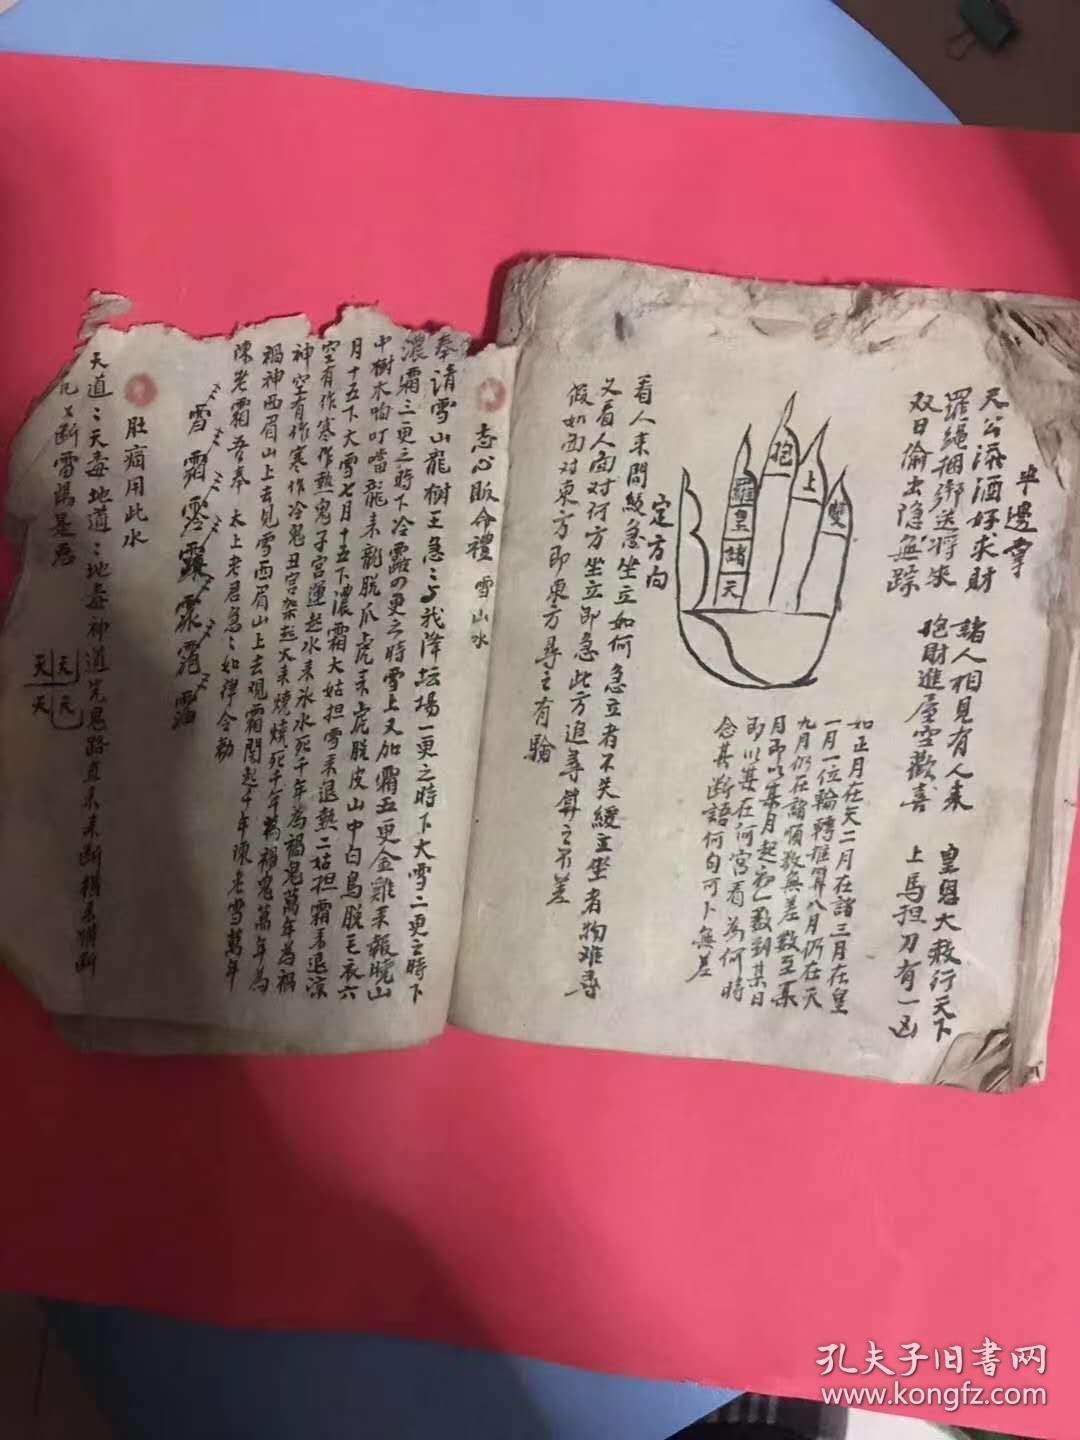 半邊掌
天公添酒好求財 諸人相見有人来 皇恩大赦行天下
羅繩捆綁送將来 抱財進屋空歡喜 上馬担刀有一凶
双日偷出隐無踪
雙
上
抱
羅
皇
諸
天
如正月在天二月在諸三月在皇
一月一位輪轉推算八月仍在天
九月仍在諸順数無差数至某
月即以某月起初一数到某日
即以其在何宮看為何時
念其断語何句可卜無差
定方向
看人来問緩急坐立如何急立者不失緩立坐者物难尋
又看人面对何方坐立即急此方追尋算之不差
假如面对東方即東方尋之有驗
志心皈命禮 雪山水
奉請雪山龍樹王急々与我降坛場一更之時下大雪二更之時下
濃霜三更之時下冷露四更之時雪上又加霜五更金雞来報曉山
中樹木响叮噹龍来龍脱爪虎来虎脱皮山中白鳥脱毛衣六
月十五下大雪七月十五下濃霜大姑担雪来退熱二姑担霜来退涼
空有作寒作熱鬼子宮運起水来氷水死千年為禍鬼萬年為禍
神空有作寒作冷鬼丑宮架起火来燒燒死千年萬禍鬼萬年為
禍神西眉山上去見雪西眉山上去观霜閗起千年陳老雪萬年
陳老霜吾奉 太上老君急々如律令勅
雪霜零
肚痛用此水
天道々天毒地道々地毒神道
断
天天
天天
孔夫子旧书网
www.kongfz.com